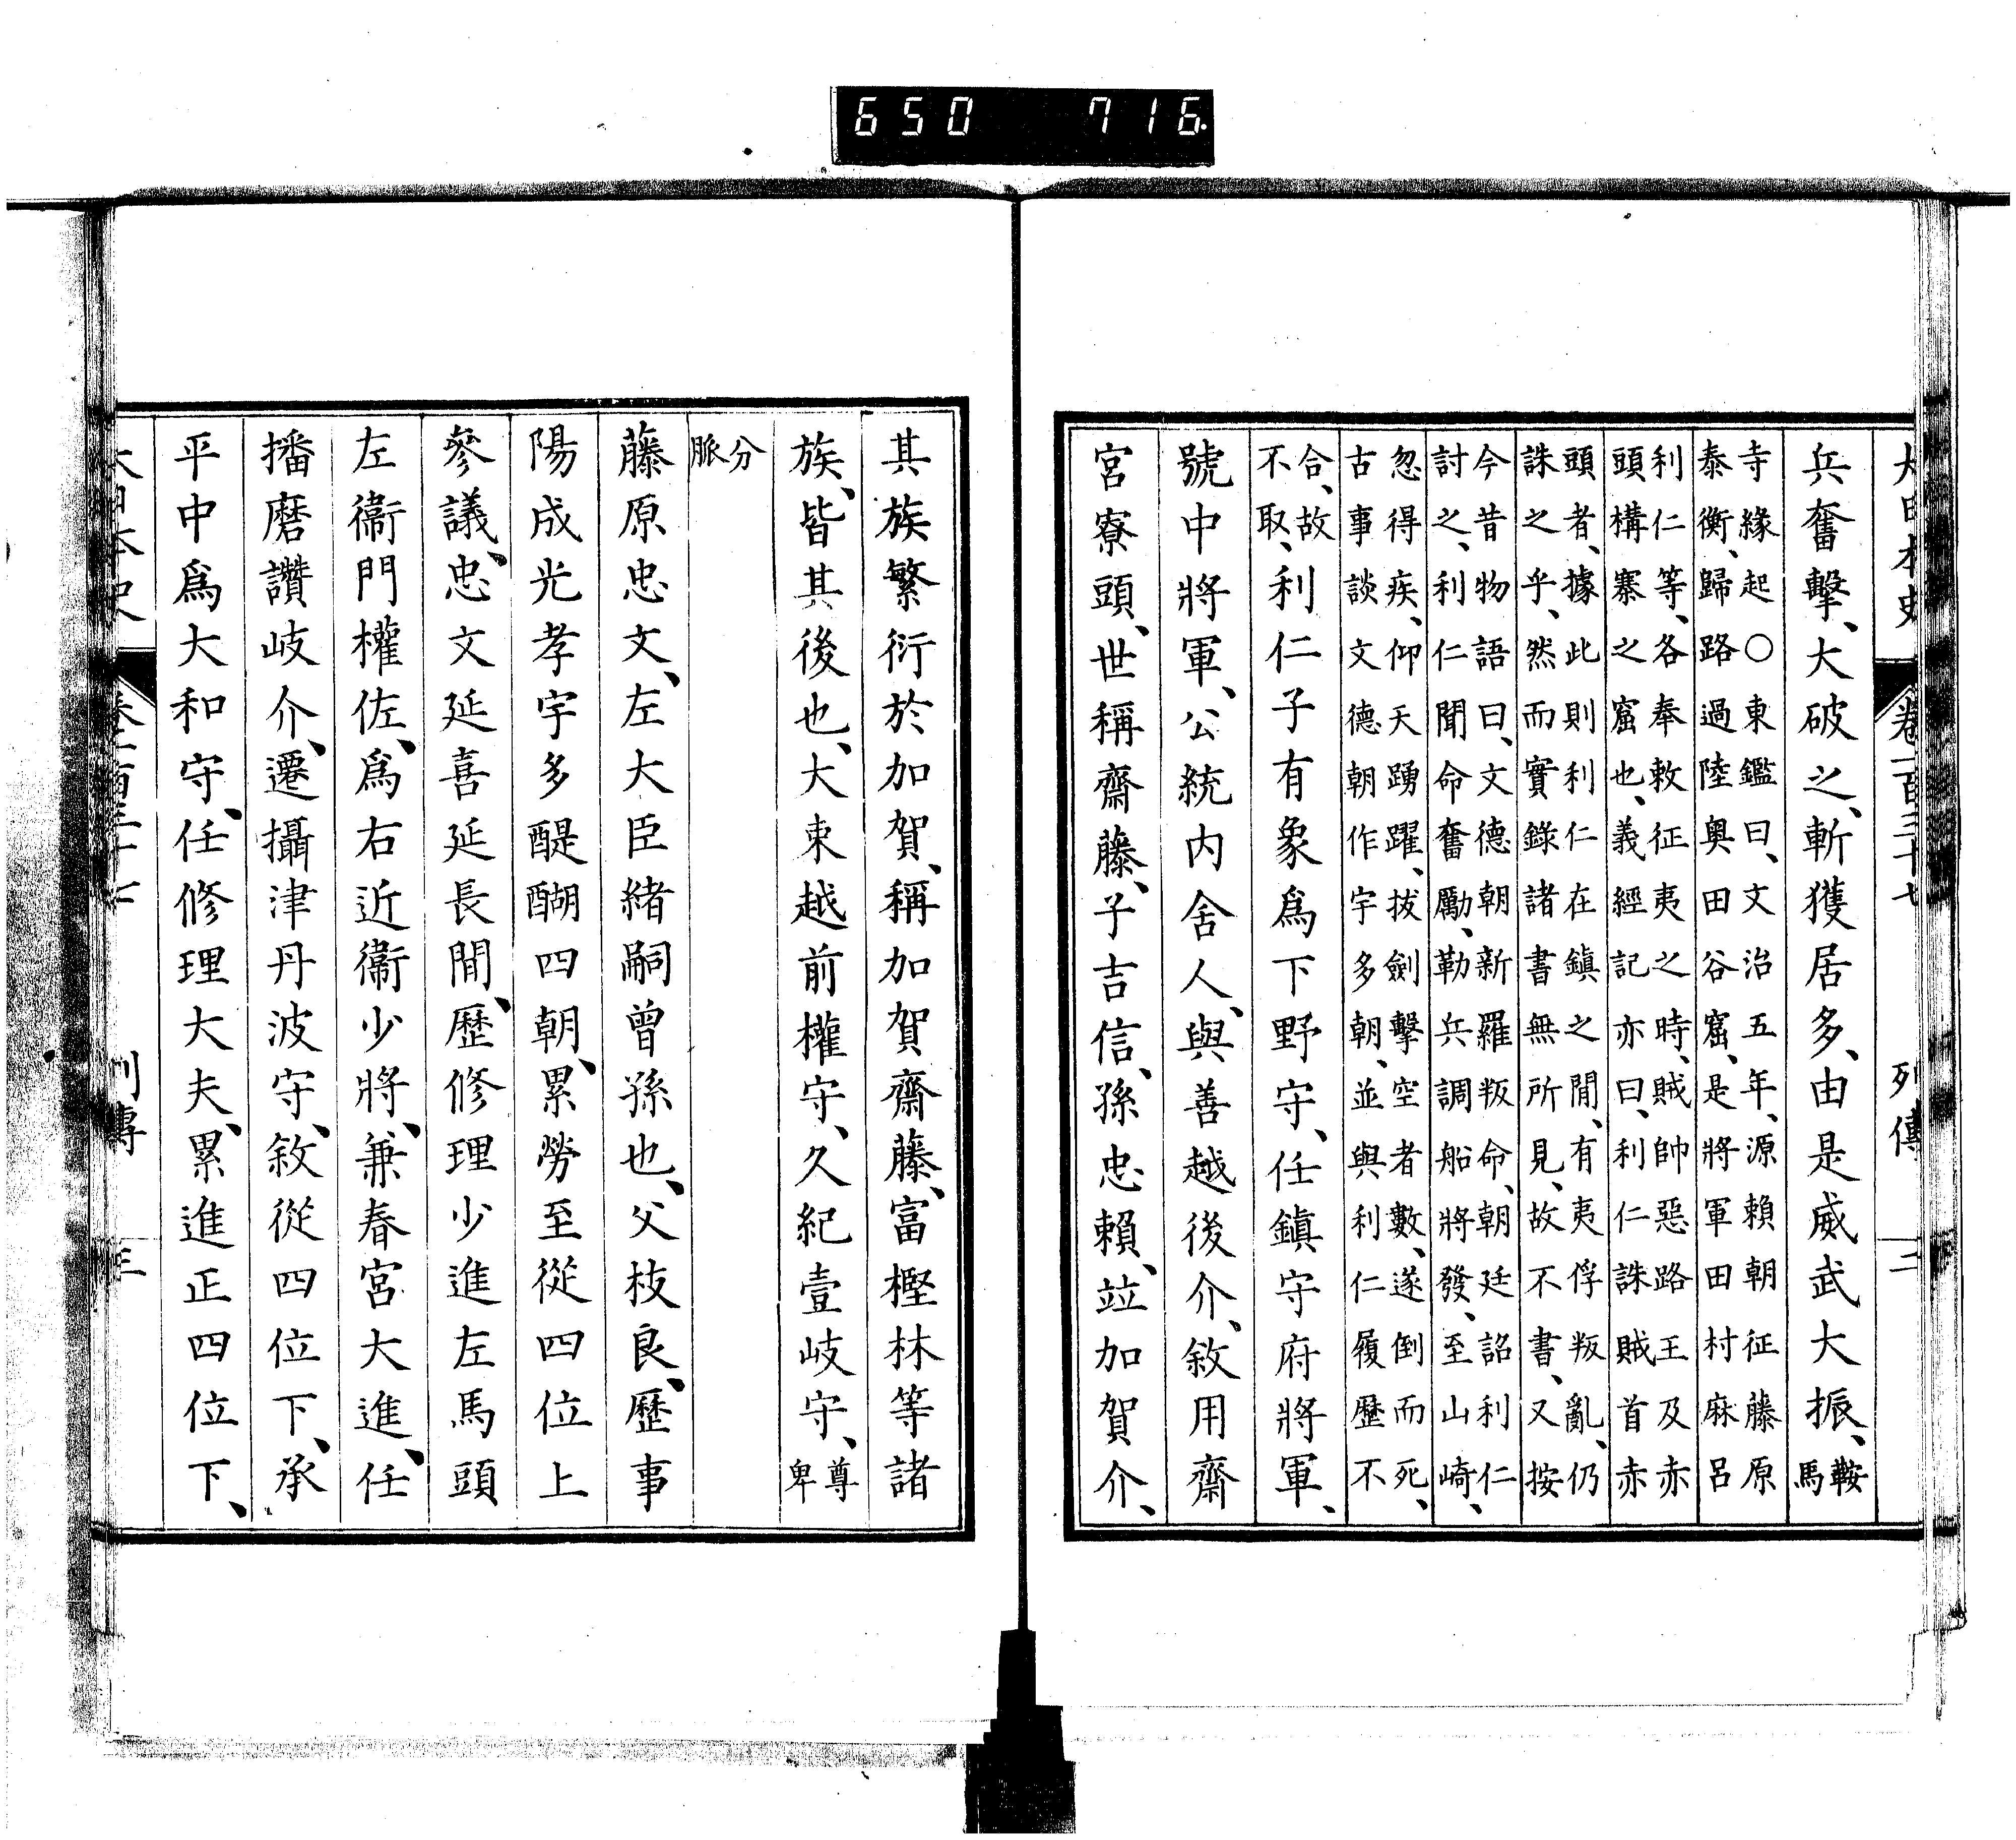 650 716.
大日本史 卷一百三十七 列傳 二
兵奮擊、大破之、斬獲居多、由是威武大振、鞍馬
寺緣起○東鑑曰、文治五年、源賴朝征藤原
泰衡、歸路過陸奧田谷窟、是將軍田村麻呂
利仁等、各奉敕征夷之時、賊帥惡路王及赤
頭構寨之窟也、義經記亦曰、利仁誅賊首赤
頭者、據此則利仁在鎭之閒、有夷俘叛亂、仍
誅之乎、然而實錄諸書無所見、故不書、又按
今昔物語曰、文德朝新羅叛命、朝廷詔利仁
討之、利仁聞命奮勵、勒兵調船將發、至山崎、
忽得疾、仰天踴躍、拔劍擊空者數、遂倒而死、
古事談文德朝作宇多朝、並與利仁履歷不
合、故
不取、利仁子有象爲下野守、任鎭守府將軍、
號中將軍、公統內舍人、與善越後介、敘用齋
宮寮頭、世稱齋藤、子吉信、孫忠賴、竝加賀介、
其族繁衍於加賀、稱加賀齋藤、富樫林等諸
族、皆其後也、大束越前權守、久紀壹岐守、尊卑
分脈
藤原忠文、左大臣緖嗣曾孫也、父枝良、歷事
陽成光孝宇多醍醐四朝、累勞至從四位上
參議、忠文延喜延長閒、歷修理少進左馬頭
左衞門權佐、爲右近衞少將、兼春宮大進、任
播磨讚岐介、遷攝津丹波守、敘從四位下、承
平中爲大和守、任修理大夫、累進正四位下、
大日本史 卷一百三十七 列傳 三